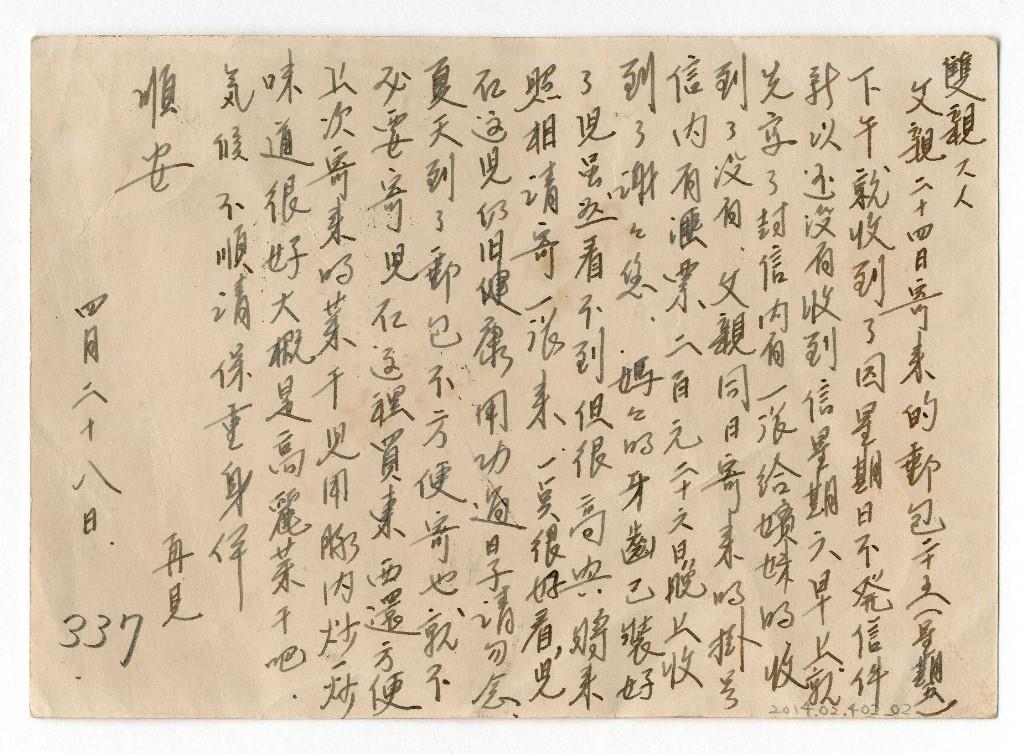 雙親大人
父親二十四日寄來的郵包二十五(星期五)
下午就收到了因星期日不発信件
所以还没有收到信星期六早上就
先字了封信内有一張給嬪妹的收
到了没有.父親同日寄来的掛号
信内有滙票二百元二十六日晚上收
到了謝々您.媽々的牙齒已裝好
了児虽然看不到但很高兴將来
照相請寄一張来 一定很好看,児
在这児仍旧健康用功過日子請勿念.
夏天到了郵包不方便寄也就不
必要寄児在这裡買東西還方便
上次寄来的菜干児用豚肉炒一炒
味道很好大概是高麗菜干吧.
気候不順請保重身体
順安 再見
四月二十八日.
337
2014.02.402_02